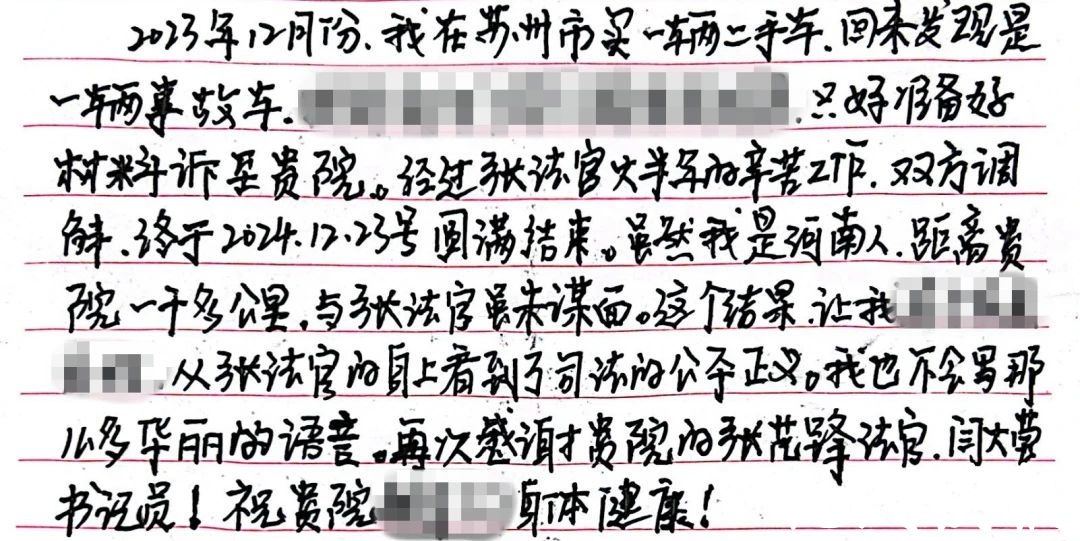 2023年12月份、我在苏州市买一辆二手车、回来发现是
一辆事故车、只好准备好
材料诉至贵院。经过张法官大半年的辛苦工作、双方调
解、终于2024.12.23号圆满结束。虽然我是河南人、距离贵
院一千多公里、与张法官虽未谋面。这个结果、让我
、从张法官的身上看到了司法的公平正义。我也不会写那
么多华丽的语言。再次感谢贵院的张范锋法官、闫大营
书记员！祝贵院身体健康！